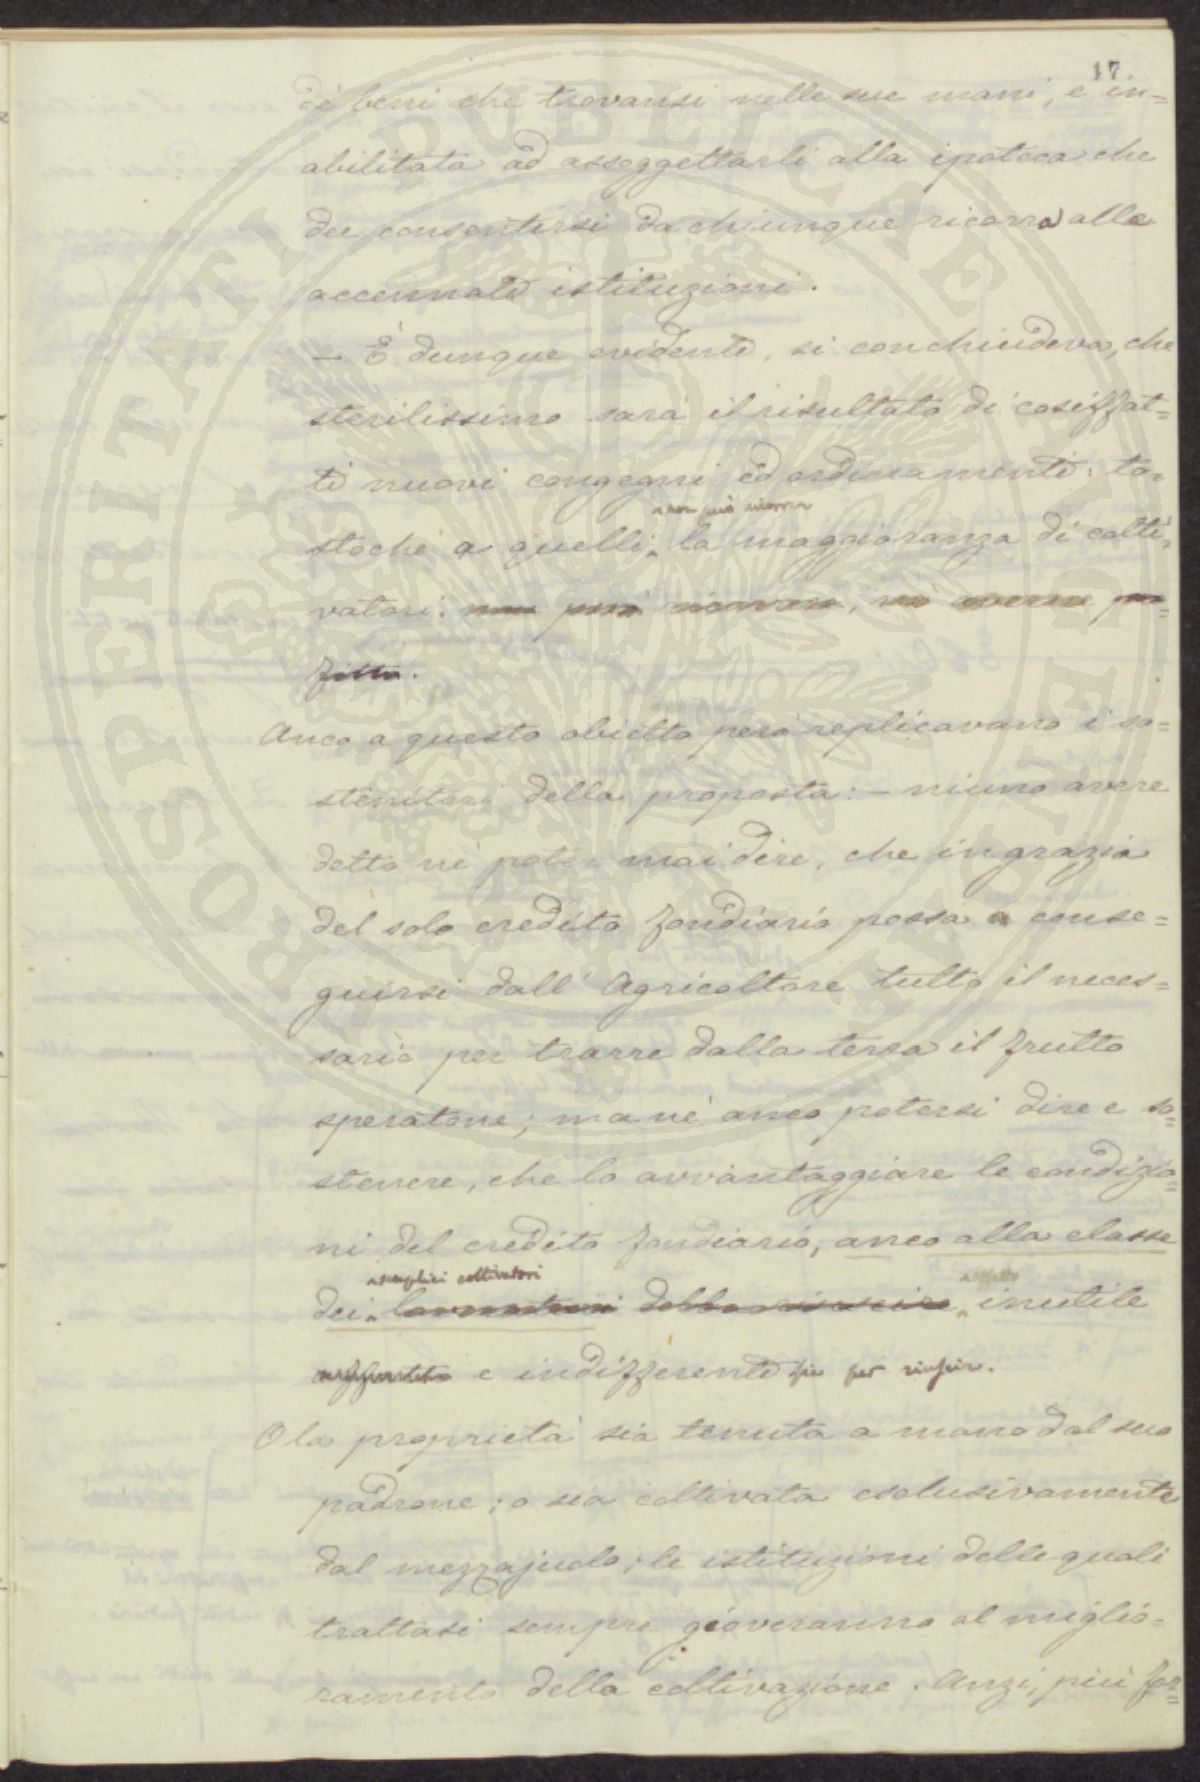 17.
de' beni che trovansi nelle sue mani, e in=
abilitata ad assoggettarli alla ipoteca che
dee consentirsi da chiunque ricorra alle
accennate istituzioni.
— È dunque evidente, si conchiudeva, che
sterilissimo sarà il risultato di cosiffat=
ti nuovi congegni ed ordinamenti: to=
non può ricorrere
stoché a quelli la maggioranza di colti=
vatori. non può ricorrere, nè averne pro=
fitto.
Anco a questo obietto però replicavano i so=
stenitori della proposta: — niuno avere
detto nè poter mai dire, che in grazia
del solo credito fondiario possa conse=
guirsi dall' Agricoltore tutto il neces=
sario per trarre dalla terra il frutto
speratone; ma nè anco potersi dire e so=
stenere, che lo avvantaggiare le condizio=
ni del credito fondiario, anco alla classe
semplici coltivatori affatto
dei lavoratori debba riuscire inutile
e indifferente sia per riuscire.
O la proprietà sia tenuta a mano dal suo
padrone; o sia coltivata esclusivamente
dal mezzajuolo; le istituzioni delle quali
trattasi sempre gioveranno al miglio=
ramento della coltivazione. Anzi, più for=
PROSPERITATI PUBLICAE AUGENDAE